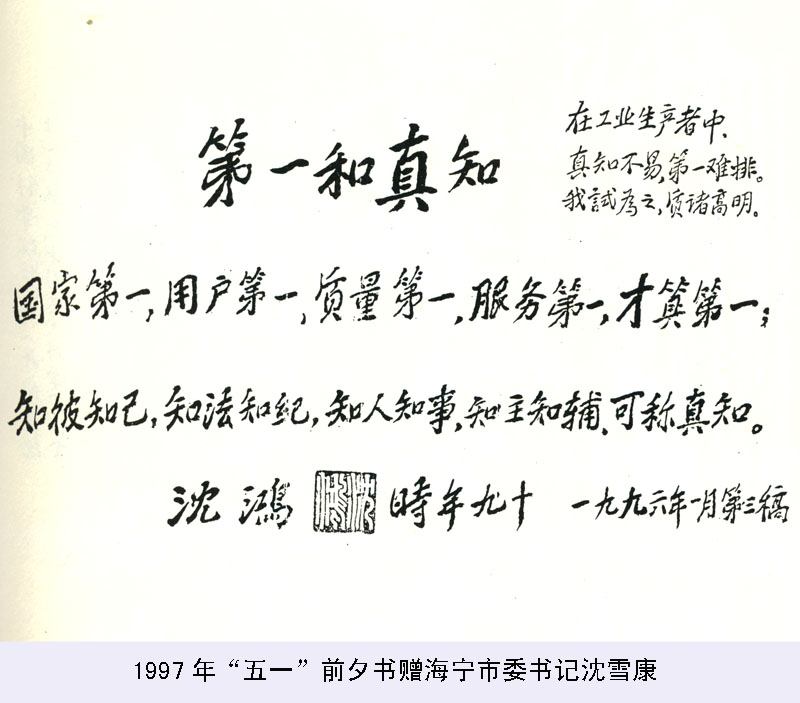 第一和真知
在工业生产者中、
真知不易,第一难排。
我試為之,质诸高明。
国家第一,用户第一,质量第一,服务第一,才算第一;
知彼知己,知法知纪,知人知事,知主知辅,可称真知。
沈鴻 時年九十 一九九六年一月第三稿
1997年“五一”前夕书赠海宁市委书记沈雪康